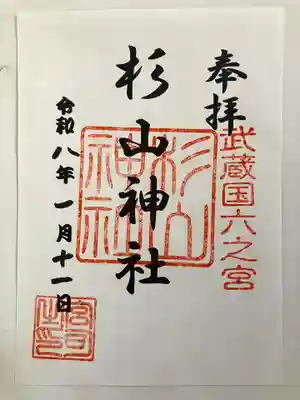 奉拝
武蔵国六之宮
杉山神社
杉山神社
令和八年一月十一日
宮司之印